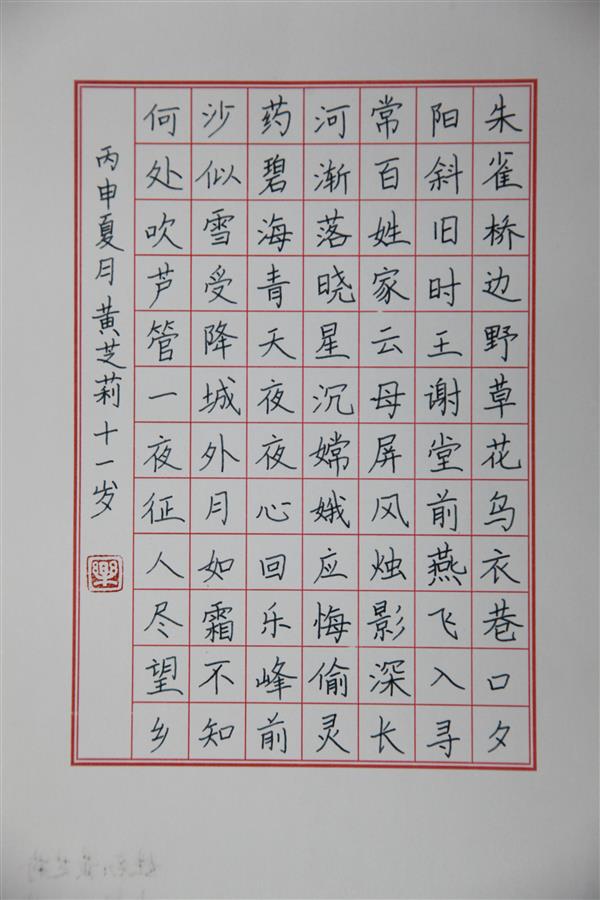 朱雀桥边野草花乌衣巷口夕
阳斜旧时王谢堂前燕飞入寻
常百姓家云母屏风烛影深长
河渐落晓星沉嫦娥应悔偷灵
药碧海青天夜夜心回乐峰前
沙似雪受降城外月如霜不知
何处吹芦管一夜征人尽望乡
丙申夏月黄芝莉十一岁